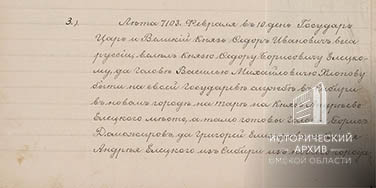 3.) Лѣта 7103. Февраля въ 10 день Государь
Царь и Великій Князь Ѳедоръ Ивановичъ всеа
русіи, велѣлъ Князю Ѳедору Борисовичу Елецко-
му, да Головѣ Василью Михайловичю Хлопову
быти на своей Государевѣ службѣ въ Сибири
въ новомъ городѣ на Тарѣ на Княжъ Андрѣево
Елецкого мѣсто, а тамо готовы Головы Борисъ
Доможировъ да Григорей
Андрѣя Елецкого изъ Сибири изъ
ИСТОРИЧЕСКИЙ
АРХИВ
ОМСКОЙ ОБЛАСТИ